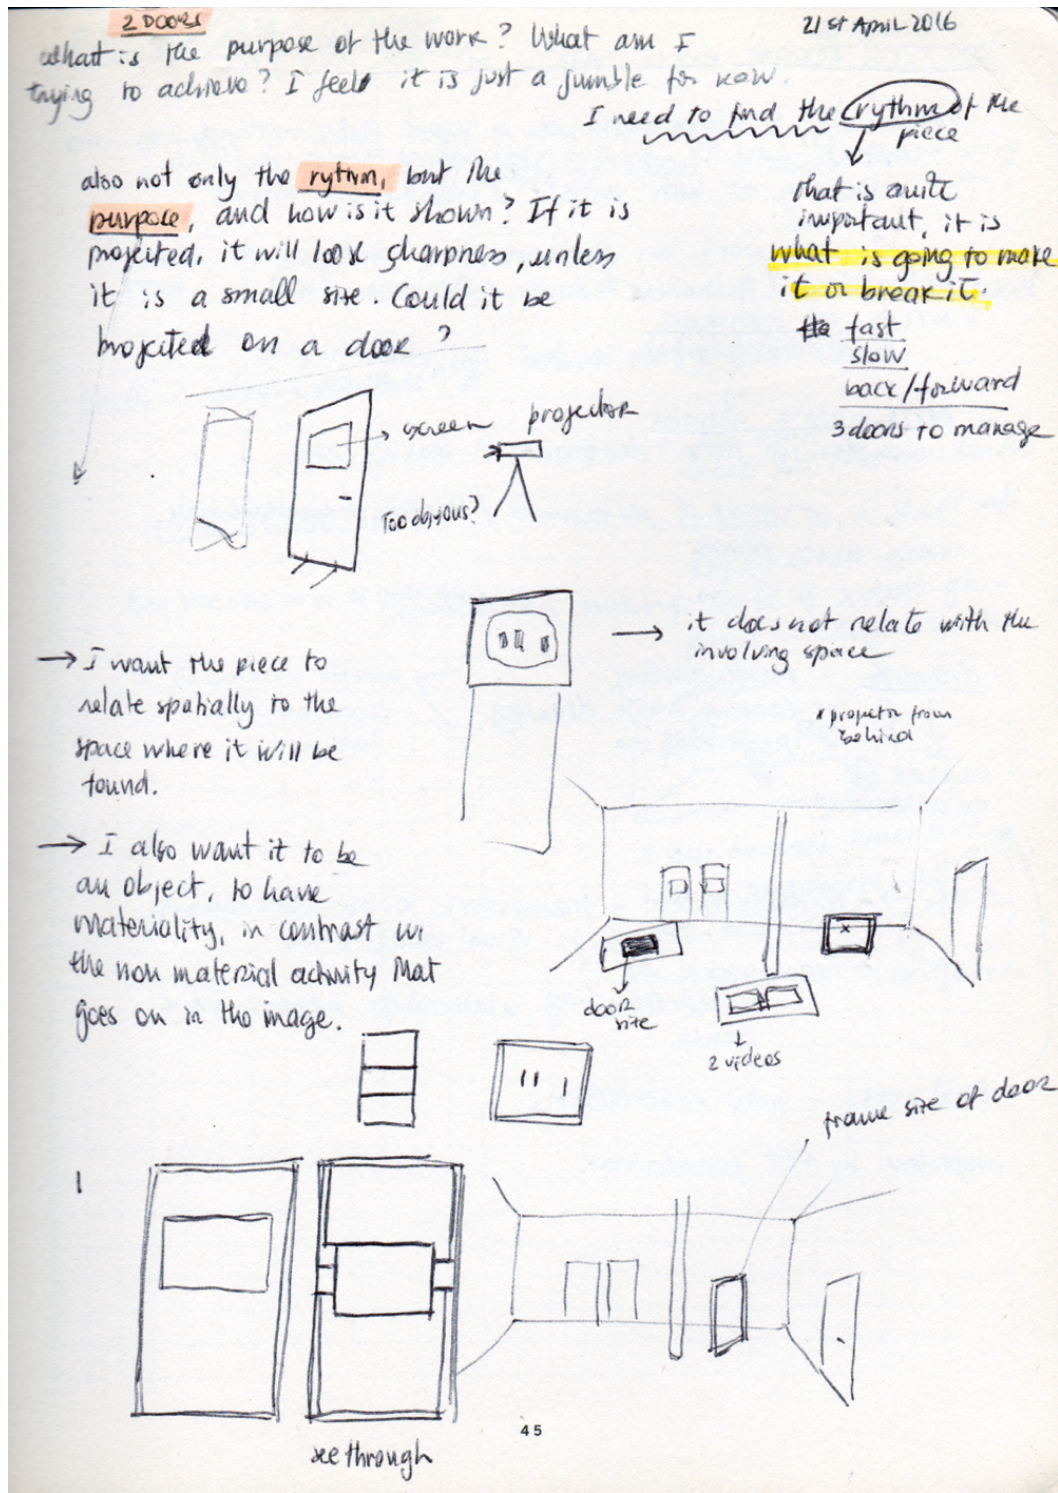 2 DOORS
21st April 2016
what is the purpose of the work? What am I
trying to achieve? I feel it is just a jumble for now.
I need to find the rythm of the
piece
that is quite
important, it is
what is going to make
it or break it.
fast
slow
back/forward
3 doors to manage
also not only the rythm, but the
purpose, and how is it shown? If it is
projected, it will loose sharpness, unless
it is a small size. Could it be
projected on a door?
screen
projector
Too obvious?
it does not relate with the
involving space
→ I want the piece to
relate spatially to the
space where it will be
found.
x projector from
behind
→ I also want it to be
an object, to have
materiality, in contrast w
the non material activity that
goes on in the image.
x
door
size
2 videos
frame size of door
1
see through
45